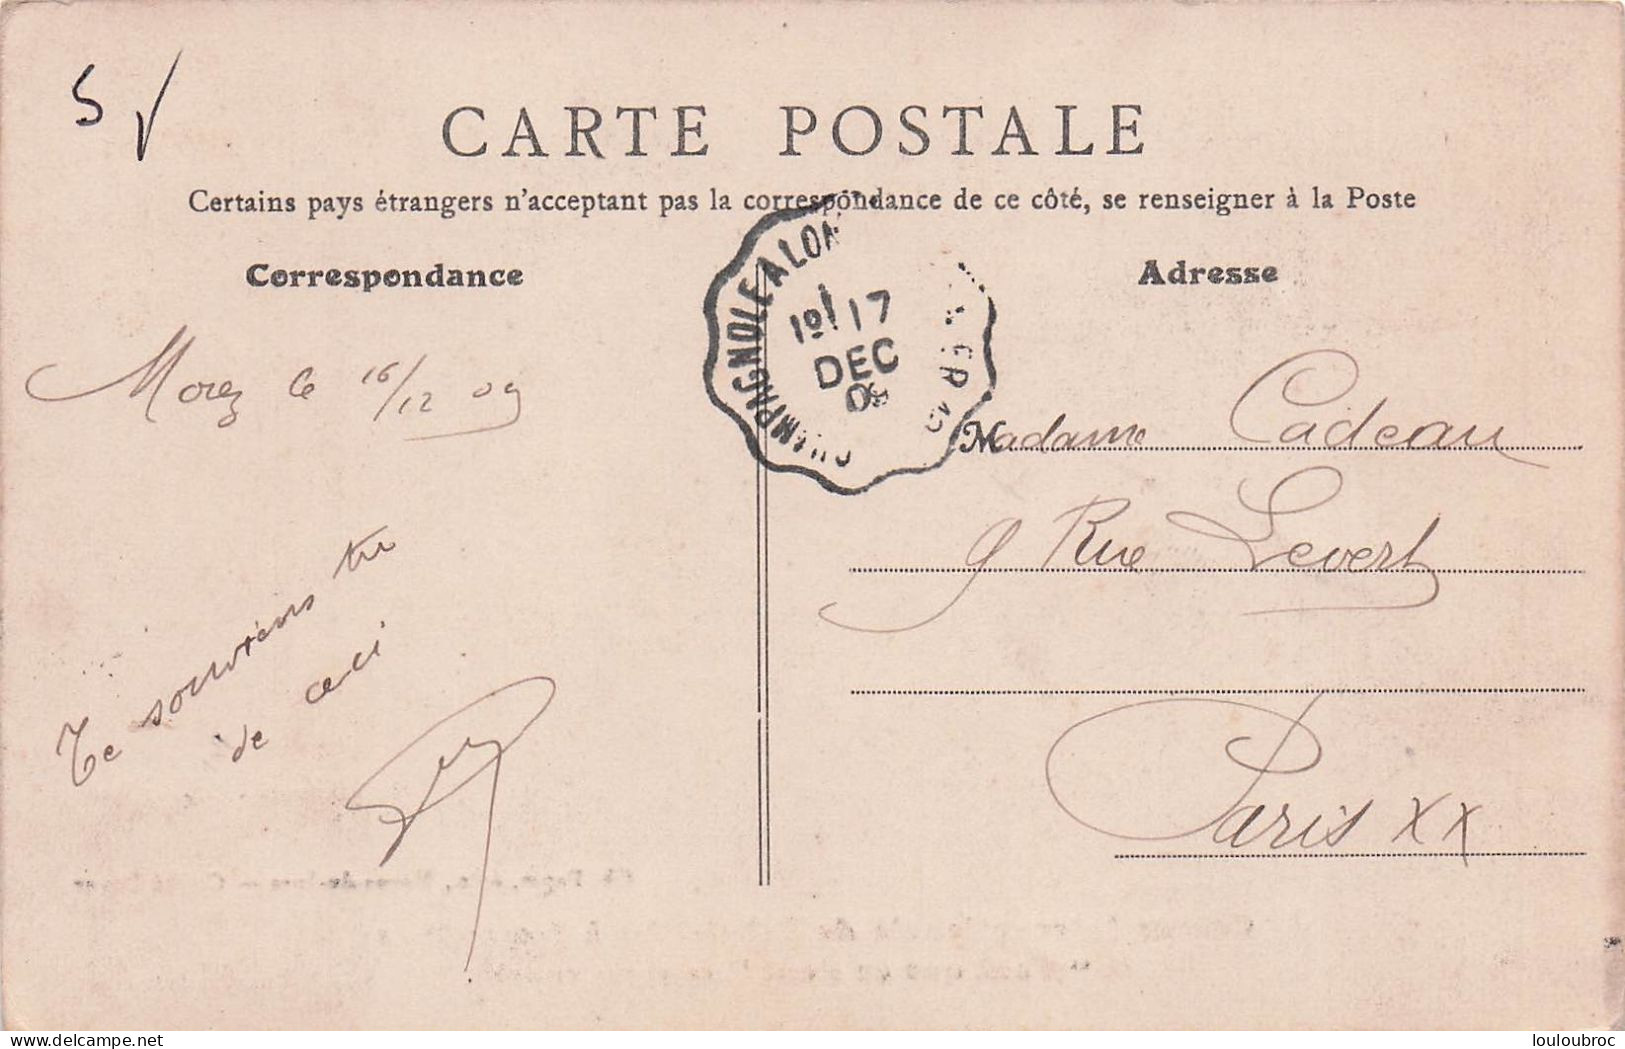 S V
CARTE POSTALE
Certains pays étrangers n'acceptant pas la correspondance de ce côté, se renseigner à la Poste
Correspondance
Adresse
CHAMPAGNOLE A LON
1º/ 17
DEC
09
Morez le 16/12 09
Te souviens tu
de ceci
Madame Cadeau
9 Rue Levert
Paris XX
www.delcampe.net
louloubroc